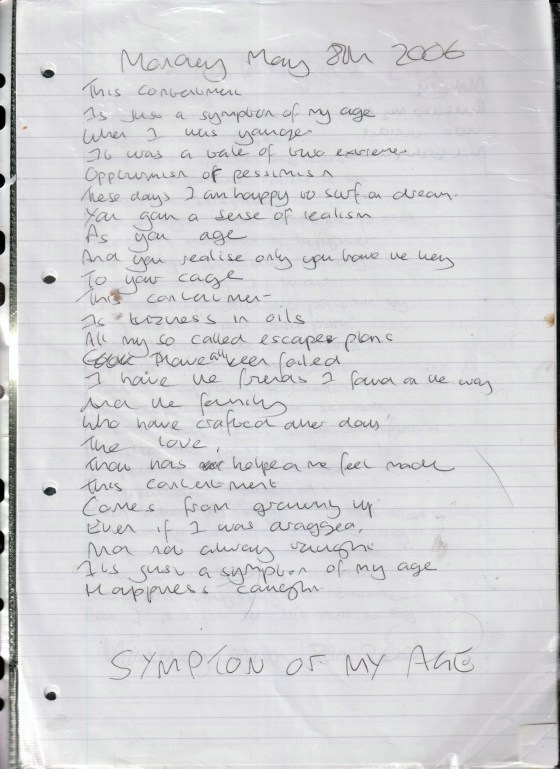 Monday May 8th 2006
This contentment
Is just a symptom of my age
When I was younger
It was a tale of two extremes
Opportunism of pessimism
These days I am happy to surf on dream.
You gain a sense of realism
As you age
And you realise only you have the key
To your cage
This contentment
Is in oils
All my so called escape plans
have all been foiled
I have the friends I found on the way
And the family
Who have crafted days
The love,
That has helped me feel made
This contentment
Comes from growing up
Even if I was dragged,
And not always taught
Its just a symptom of my age
Happness caught
SYMPTON OF MY AGE